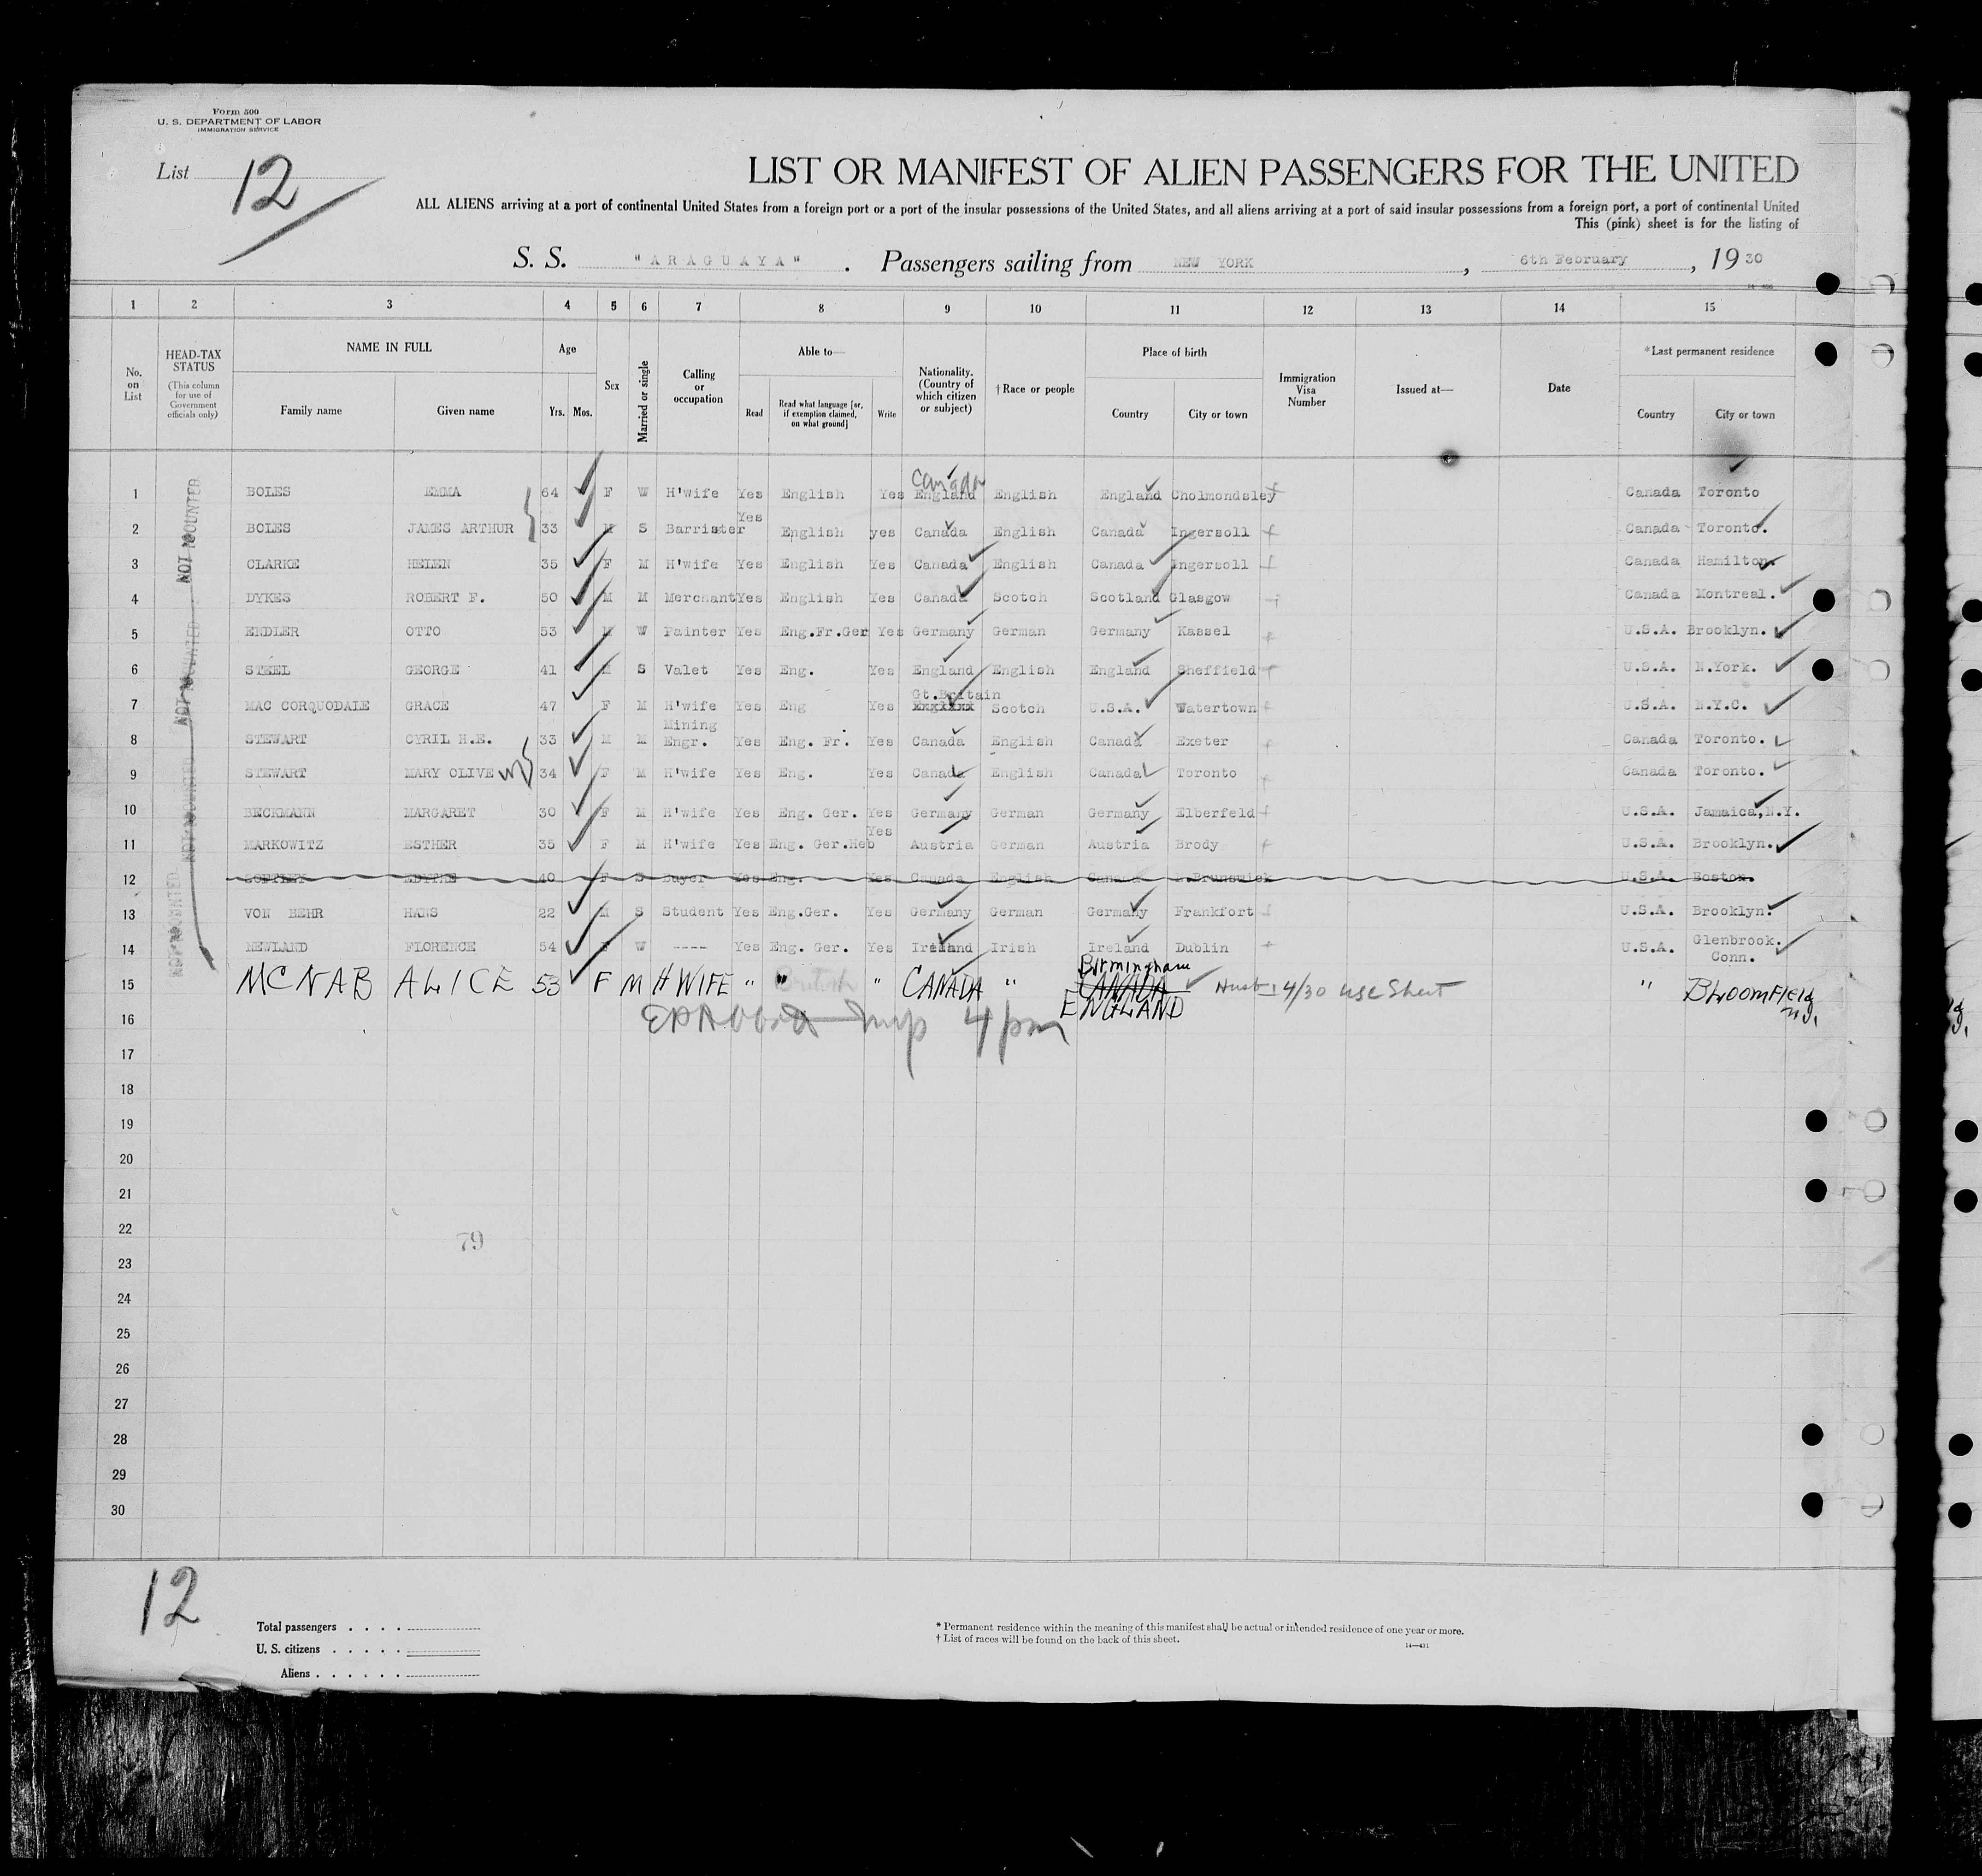 Form 500
U. S. DEPARTMENT OF LABOR
IMMIGRATION SERVICE
List 12
LIST OR MANIFEST OF ALIEN PASSENGERS FOR THE UNITED
ALL ALIENS arriving at a port of continental United States from a foreign port or a port of the insular possessions of the United States, and all aliens arriving at a port of said insular possessions from a foreign port, a port of continental United
This (pink) sheet is for the listing of
S. S. "ARAGUAYA". Passengers sailing from NEW YORK, 6th February, 1930
1 2 3 4 5 6 7 8 9 10 11 12 13 14 15
No. on List
HEAD-TAX STATUS (This column for use of Government officials only)
NAME IN FULL
Family name Given name
Age
Yrs. Mos.
Sex
Married or single
Calling or occupation
Able to—
Read Read what language [or, if exemption claimed, on what ground] Write
Nationality. (Country of which citizen or subject)
† Race or people
Place of birth
Country City or town
Immigration Visa Number
Issued at—
Date
*Last permanent residence
Country City or town
NOT MOUNTED
1 BOLES EMMA 64 F W H'wife Yes English Yes Canada England English England Cholmondsley Canada Toronto
2 BOLES JAMES ARTHUR 33 M S Barrister Yes English yes Canada English Canada Ingersoll Canada Toronto.
3 CLARKE HELEN 35 F M H'wife Yes English Yes Canada English Canada Ingersoll Canada Hamilton.
4 DYKES ROBERT F. 50 M M Merchant Yes English Yes Canada Scotch Scotland Glasgow Canada Montreal.
5 ENDLER OTTO 53 M W Painter Yes Eng.Fr.Ger Yes Germany German Germany Kassel U.S.A. Brooklyn.
6 STEEL GEORGE 41 M S Valet Yes Eng. Yes England English England Sheffield U.S.A. N.York.
7 MAC CORQUODALE GRACE 47 F M H'wife Yes Eng Yes Gt.Britain Scotch U.S.A. Watertown U.S.A. N.Y.C.
8 STEWART CYRIL H.E. 33 M M Mining Engr. Yes Eng. Fr. Yes Canada English Canada Exeter Canada Toronto.
9 STEWART MARY OLIVE 34 F M H'wife Yes Eng. Yes Canada English Canada Toronto Canada Toronto.
10 BECKMANN MARGARET 30 F M H'wife Yes Eng. Ger. Yes Germany German Germany Elberfeld U.S.A. Jamaica,N.Y.
11 MARKOWITZ ESTHER 35 F M H'wife Yes Eng. Ger.Heb Yes Austria German Austria Brody U.S.A. Brooklyn.
12 EDYTHE 40 F S Buyer Yes Eng. Yes Canada English Canada N.Brunswick U.S.A. Boston.
13 VON BEHR HANS 22 M S Student Yes Eng.Ger. Yes Germany German Germany Frankfort U.S.A. Brooklyn.
14 NEWLAND FLORENCE 54 F W ---- Yes Eng. Ger. Yes Ireland Irish Ireland Dublin U.S.A. Glenbrook. Conn.
15 MCNAB ALICE 53 F M H WIFE " " " CANADA " Birmingham CANADA ENGLAND 4/30 Sheet " BLOOMFIELD N.J.
16 4 pm
17
18
19
20
21
22
79
23
24
25
26
27
28
29
30
12
Total passengers
U. S. citizens
Aliens
* Permanent residence within the meaning of this manifest shall be actual or intended residence of one year or more.
† List of races will be found on the back of this sheet.
14—431